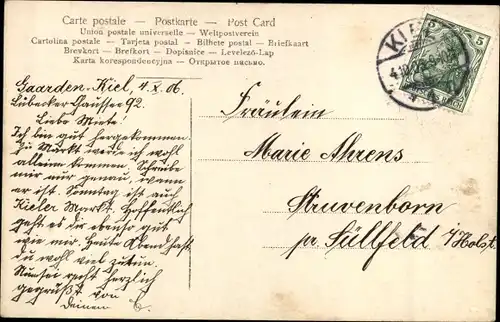 Carte postale – Postkarte – Post Card
Union postale universelle – Weltpostverein
Cartolina postale – Tarjeta postal – Bilhete postal – Briefkaart
Brevkort – Brefkort – Dopisnice – Levelező-Lap
Karta korespondencyjna – Открытое письмо.
5 5
KIEL
Gaarden, Kiel, 4.X.06.
Lübecker Chaussee 92.
Liebe Miete!
Ich bin gut hergekommen.
Zu Markt werde ich wohl
allein kommen. Schreibe
mir nur genau, wann
er ist. Sonntag ist auch
Kieler Markt. Hoffentlich
geht es dir ebenso gut
wie mir. Heute Abend hast
du wohl viel zutun.
Nun sei recht herzlich
gegrüßt von
Deinem
Fräulein
Marie Ahrens
Struvenborn
pr. Süllfeld i/Holst.